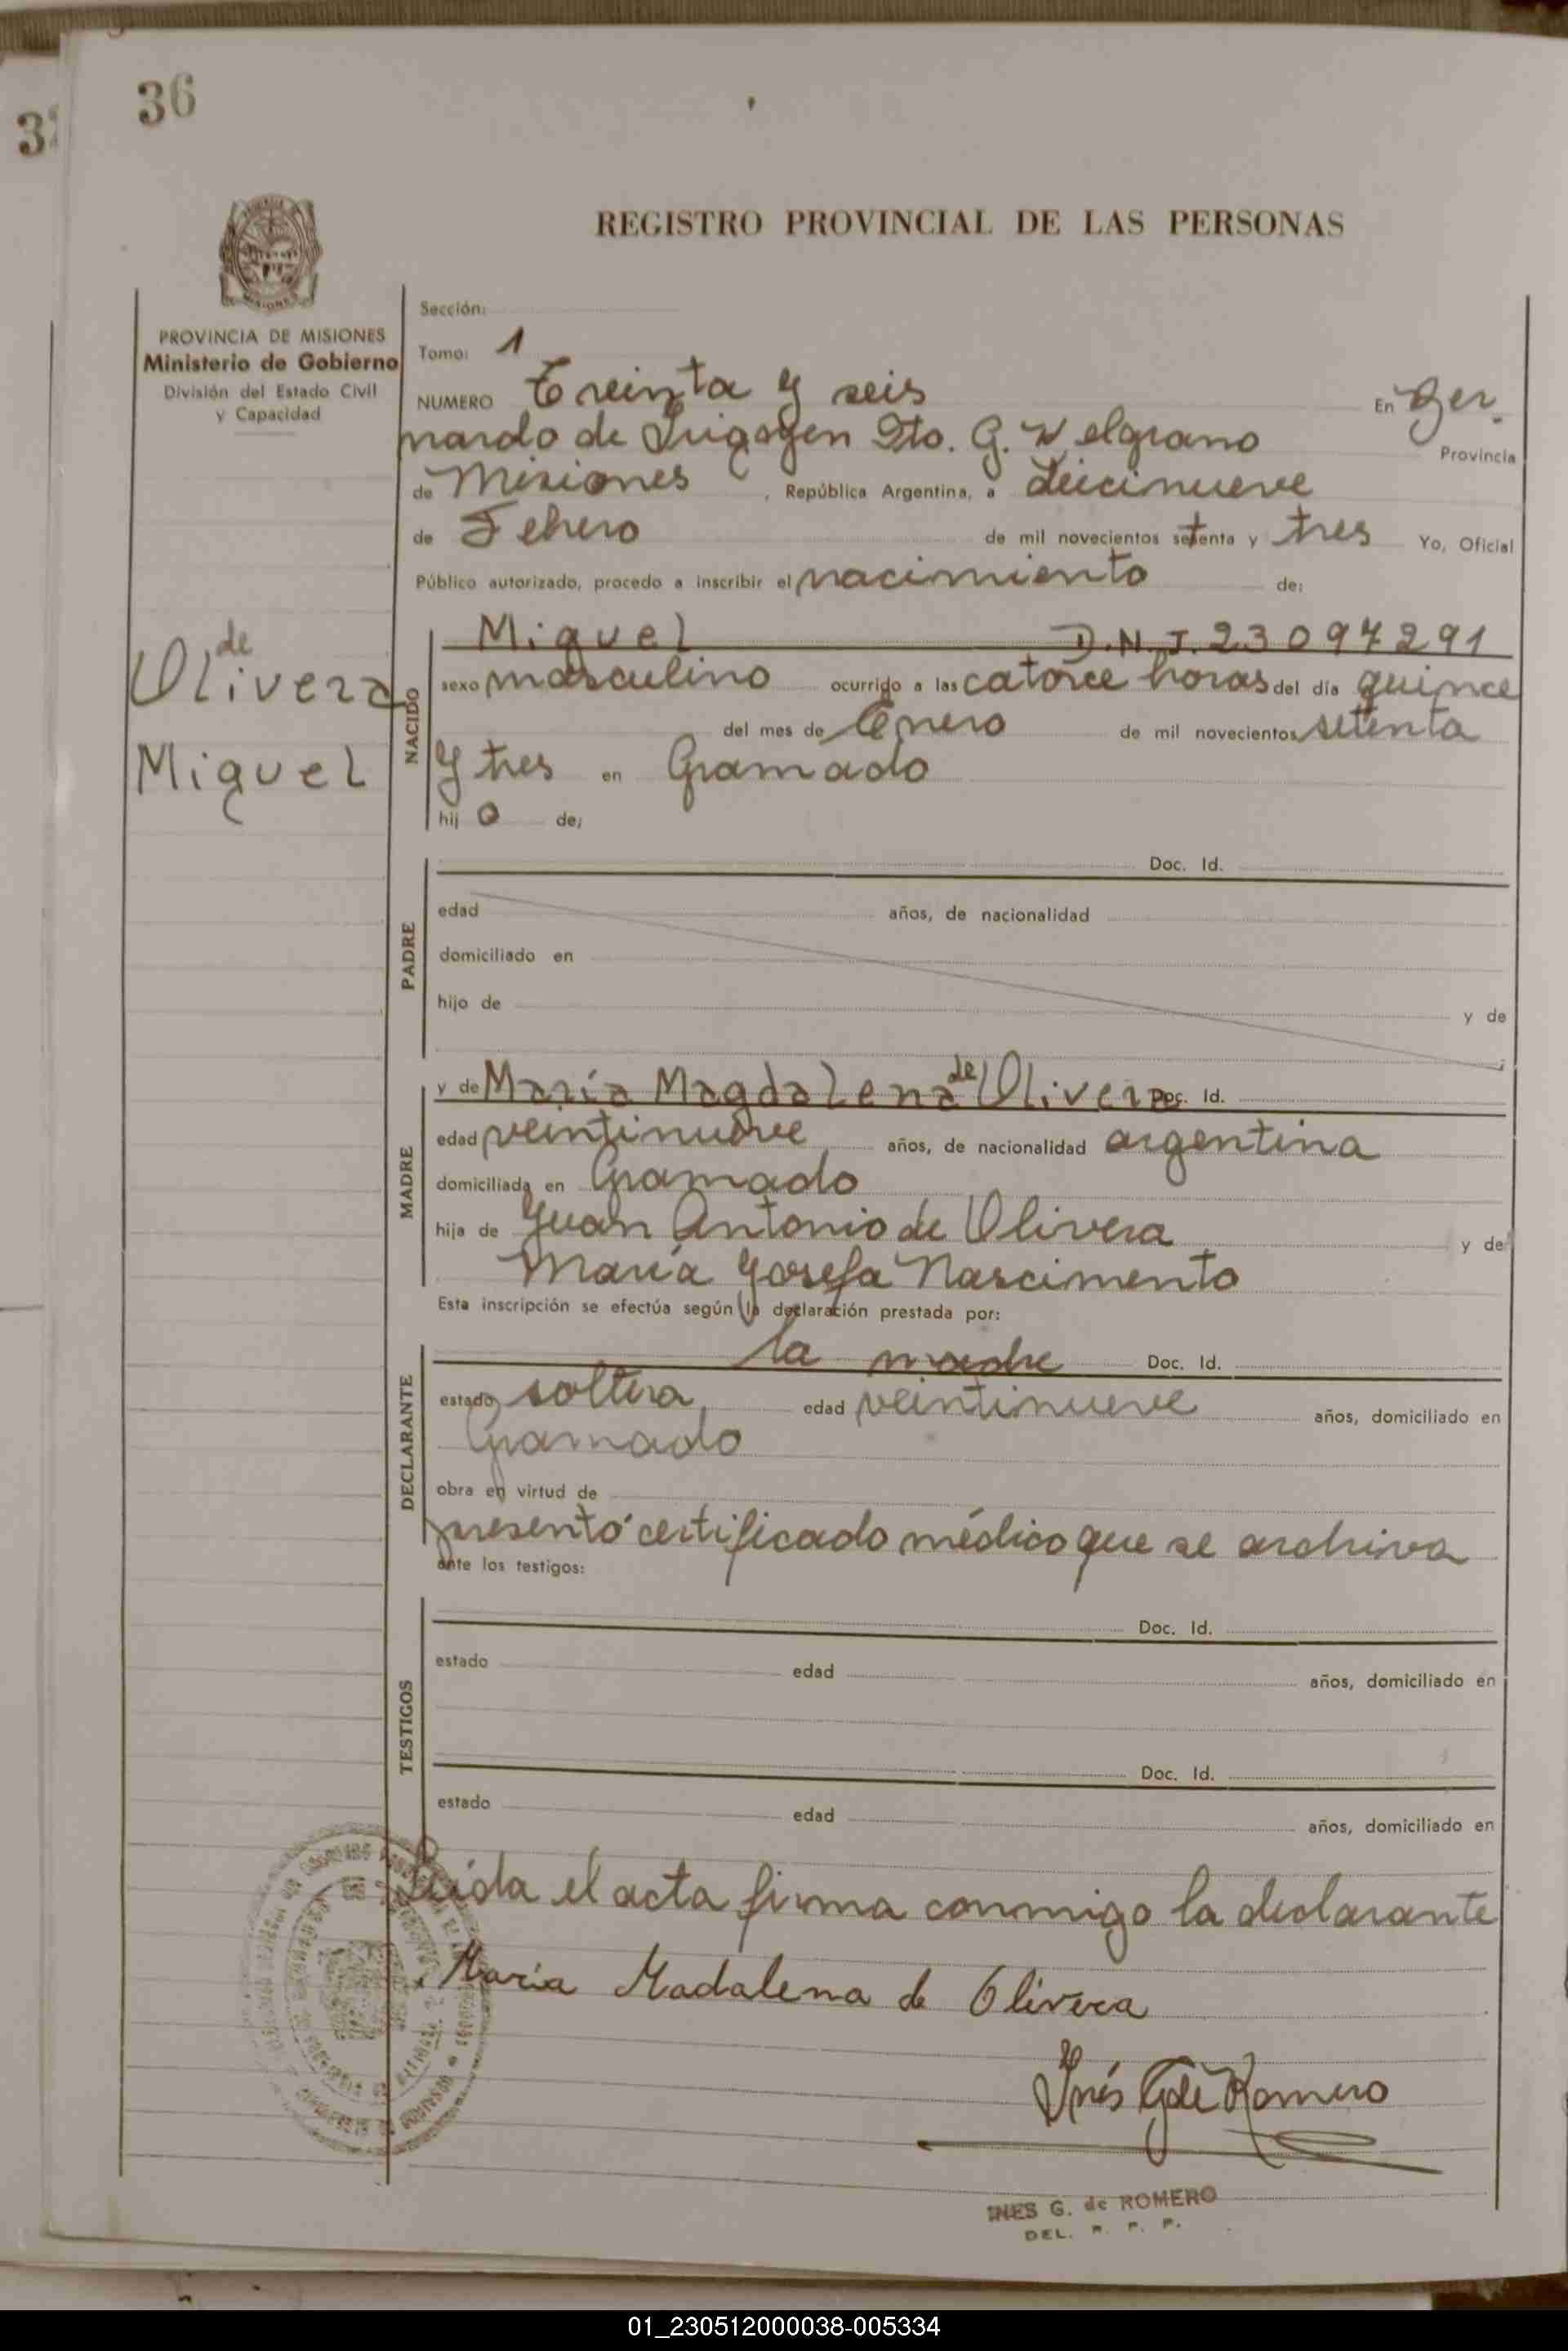 36
REGISTRO PROVINCIAL DE LAS PERSONAS
PROVINCIA DE MISIONES
Ministerio de Gobierno
División del Estado Civil
y Capacidad
Sección:
Tomo: 1
NUMERO Treinta y seis En Ber-
nardo de Irigoyen Dto. G. Belgrano Provincia
de Misiones, República Argentina, a diecinueve
de Febrero de mil novecientos setenta y tres Yo, Oficial
Público autorizado, procedo a inscribir el nacimiento de:
de
Olivera
Miguel
NACIDO
Miguel D.N.I. 23097291
sexo masculino ocurrido a las catorce horas del día quince
del mes de Enero de mil novecientos setenta
y tres en Gramado
hij o de;
PADRE
Doc. Id.
edad años, de nacionalidad
domiciliado en
hijo de y de
MADRE
y de María Magdalena de Olivera Doc. Id.
edad veintinueve años, de nacionalidad argentina
domiciliada en Gramado
hija de Juan Antonio de Olivera y de
María Josefa Nascimento
Esta inscripción se efectúa según la declaración prestada por:
DECLARANTE
la madre Doc. Id.
estado soltera edad veintinueve años, domiciliado en
Gramado
obra en virtud de
presentó certificado médico que se archiva
ante los testigos:
TESTIGOS
Doc. Id.
estado edad años, domiciliado en
Doc. Id.
estado edad años, domiciliado en
Leída el acta firma conmigo la declarante
María Madalena de Olivera
Inés G de Romero
INES G. de ROMERO
DEL. R. P. P.
01_230512000038-005334